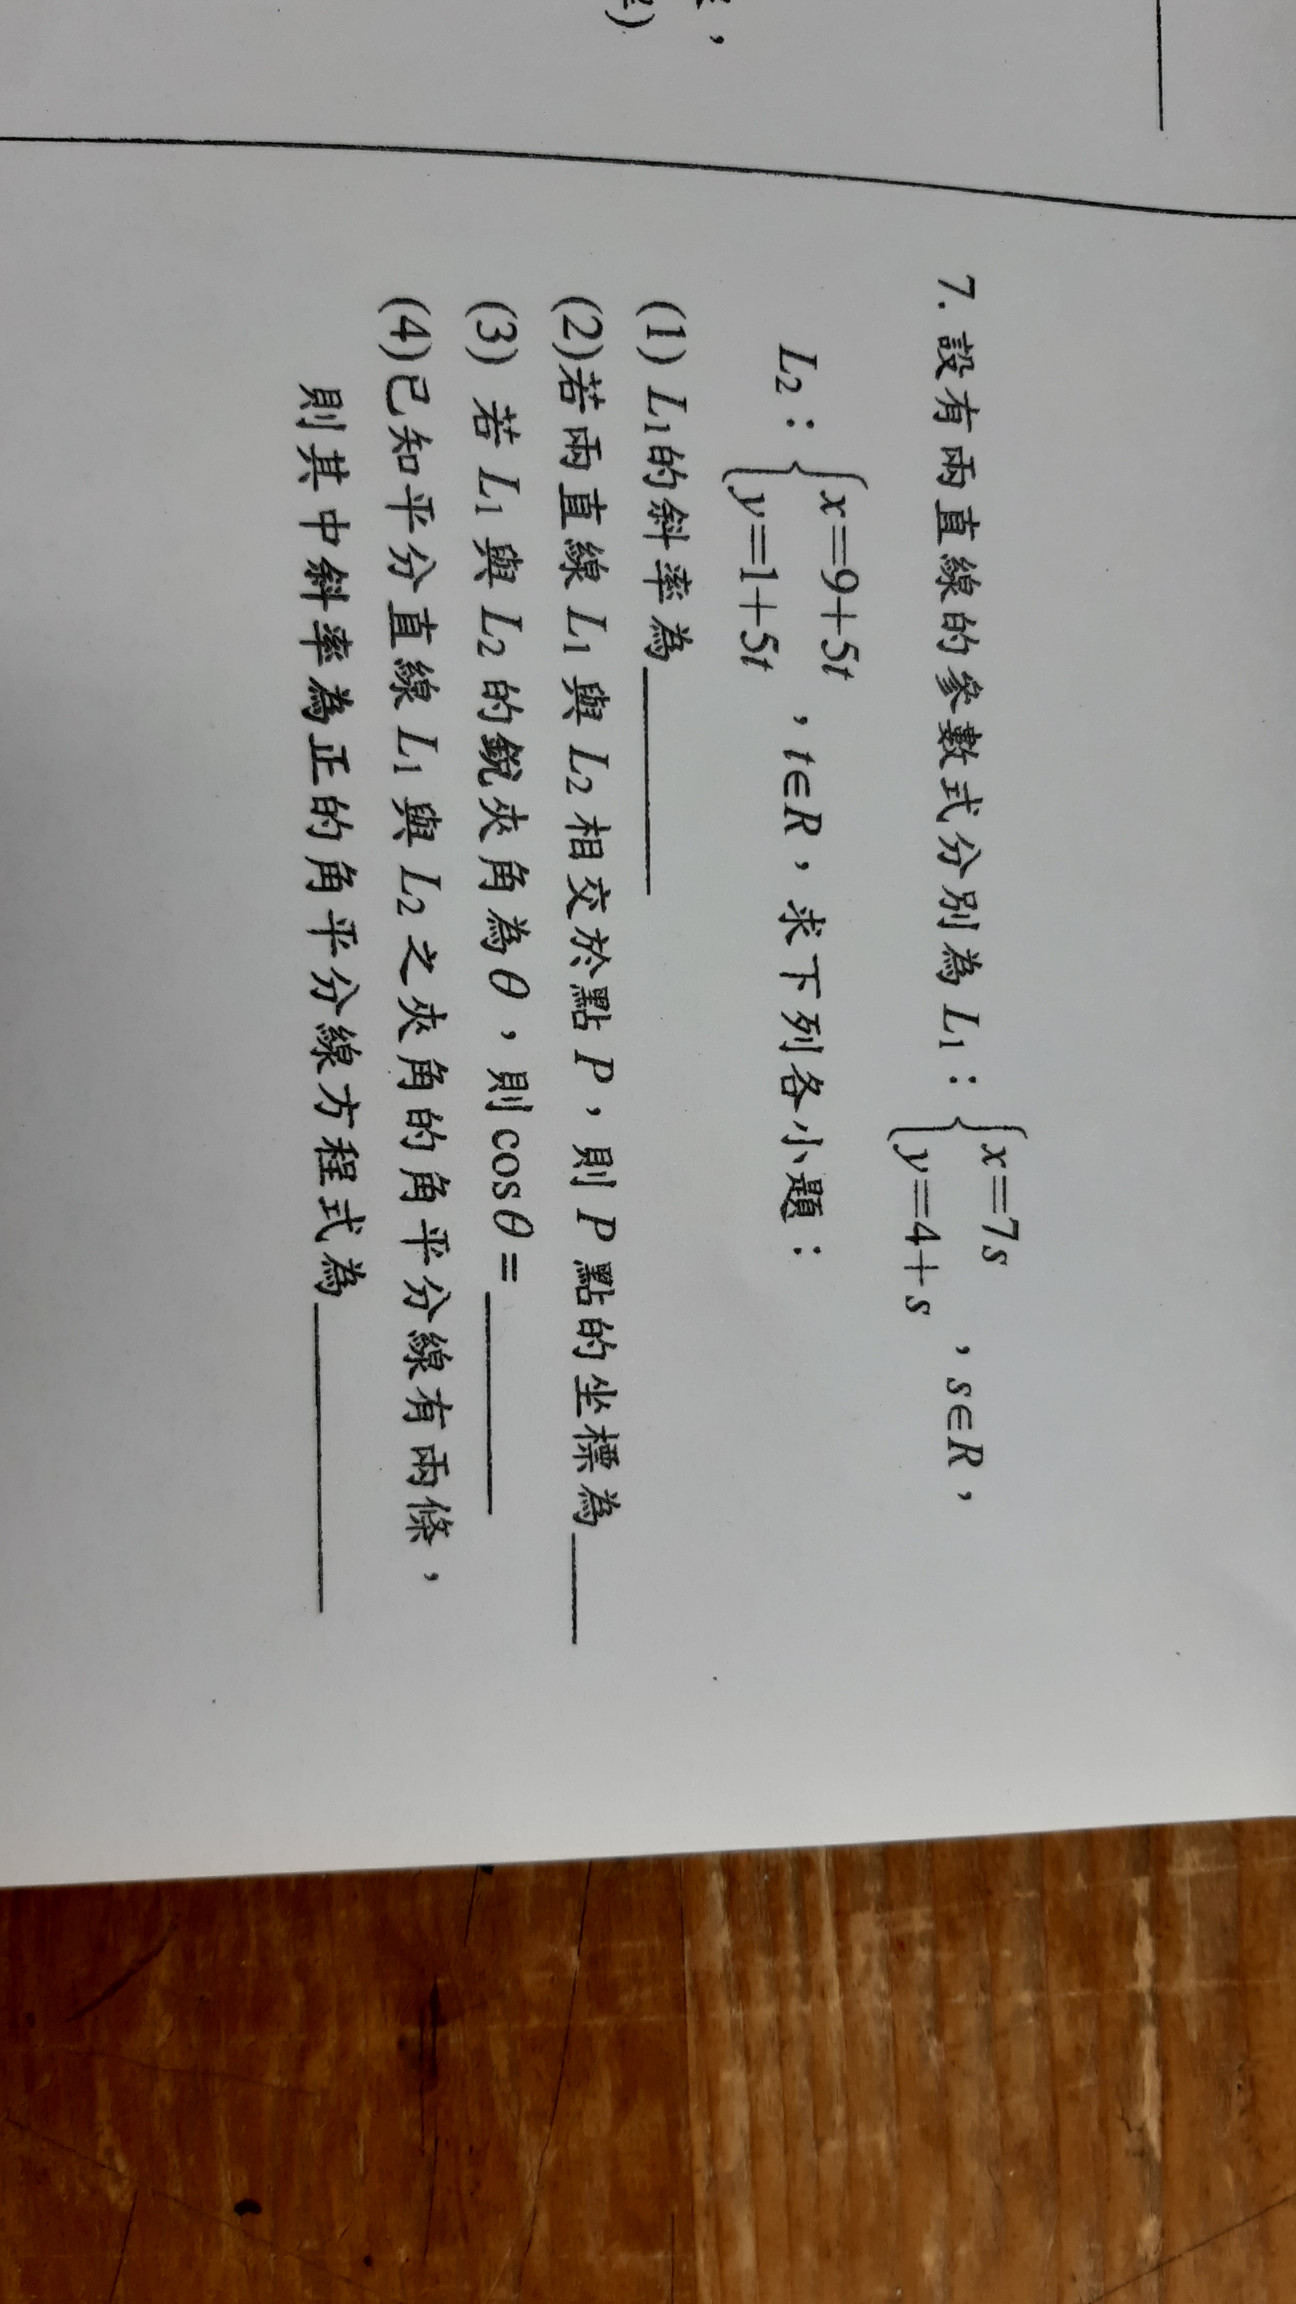 7. 設有兩直線的參數式分別為 L₁：{x=7s
y=4+s ，s∈R，
L₂：{x=9+5t
y=1+5t ，t∈R，求下列各小題：
(1) L₁的斜率為
(2)若兩直線 L₁ 與 L₂ 相交於點 P，則 P 點的坐標為
(3) 若 L₁ 與 L₂ 的銳夾角為 θ，則 cosθ=
(4)已知平分直線 L₁ 與 L₂ 之夾角的角平分線有兩條，
則其中斜率為正的角平分線方程式為